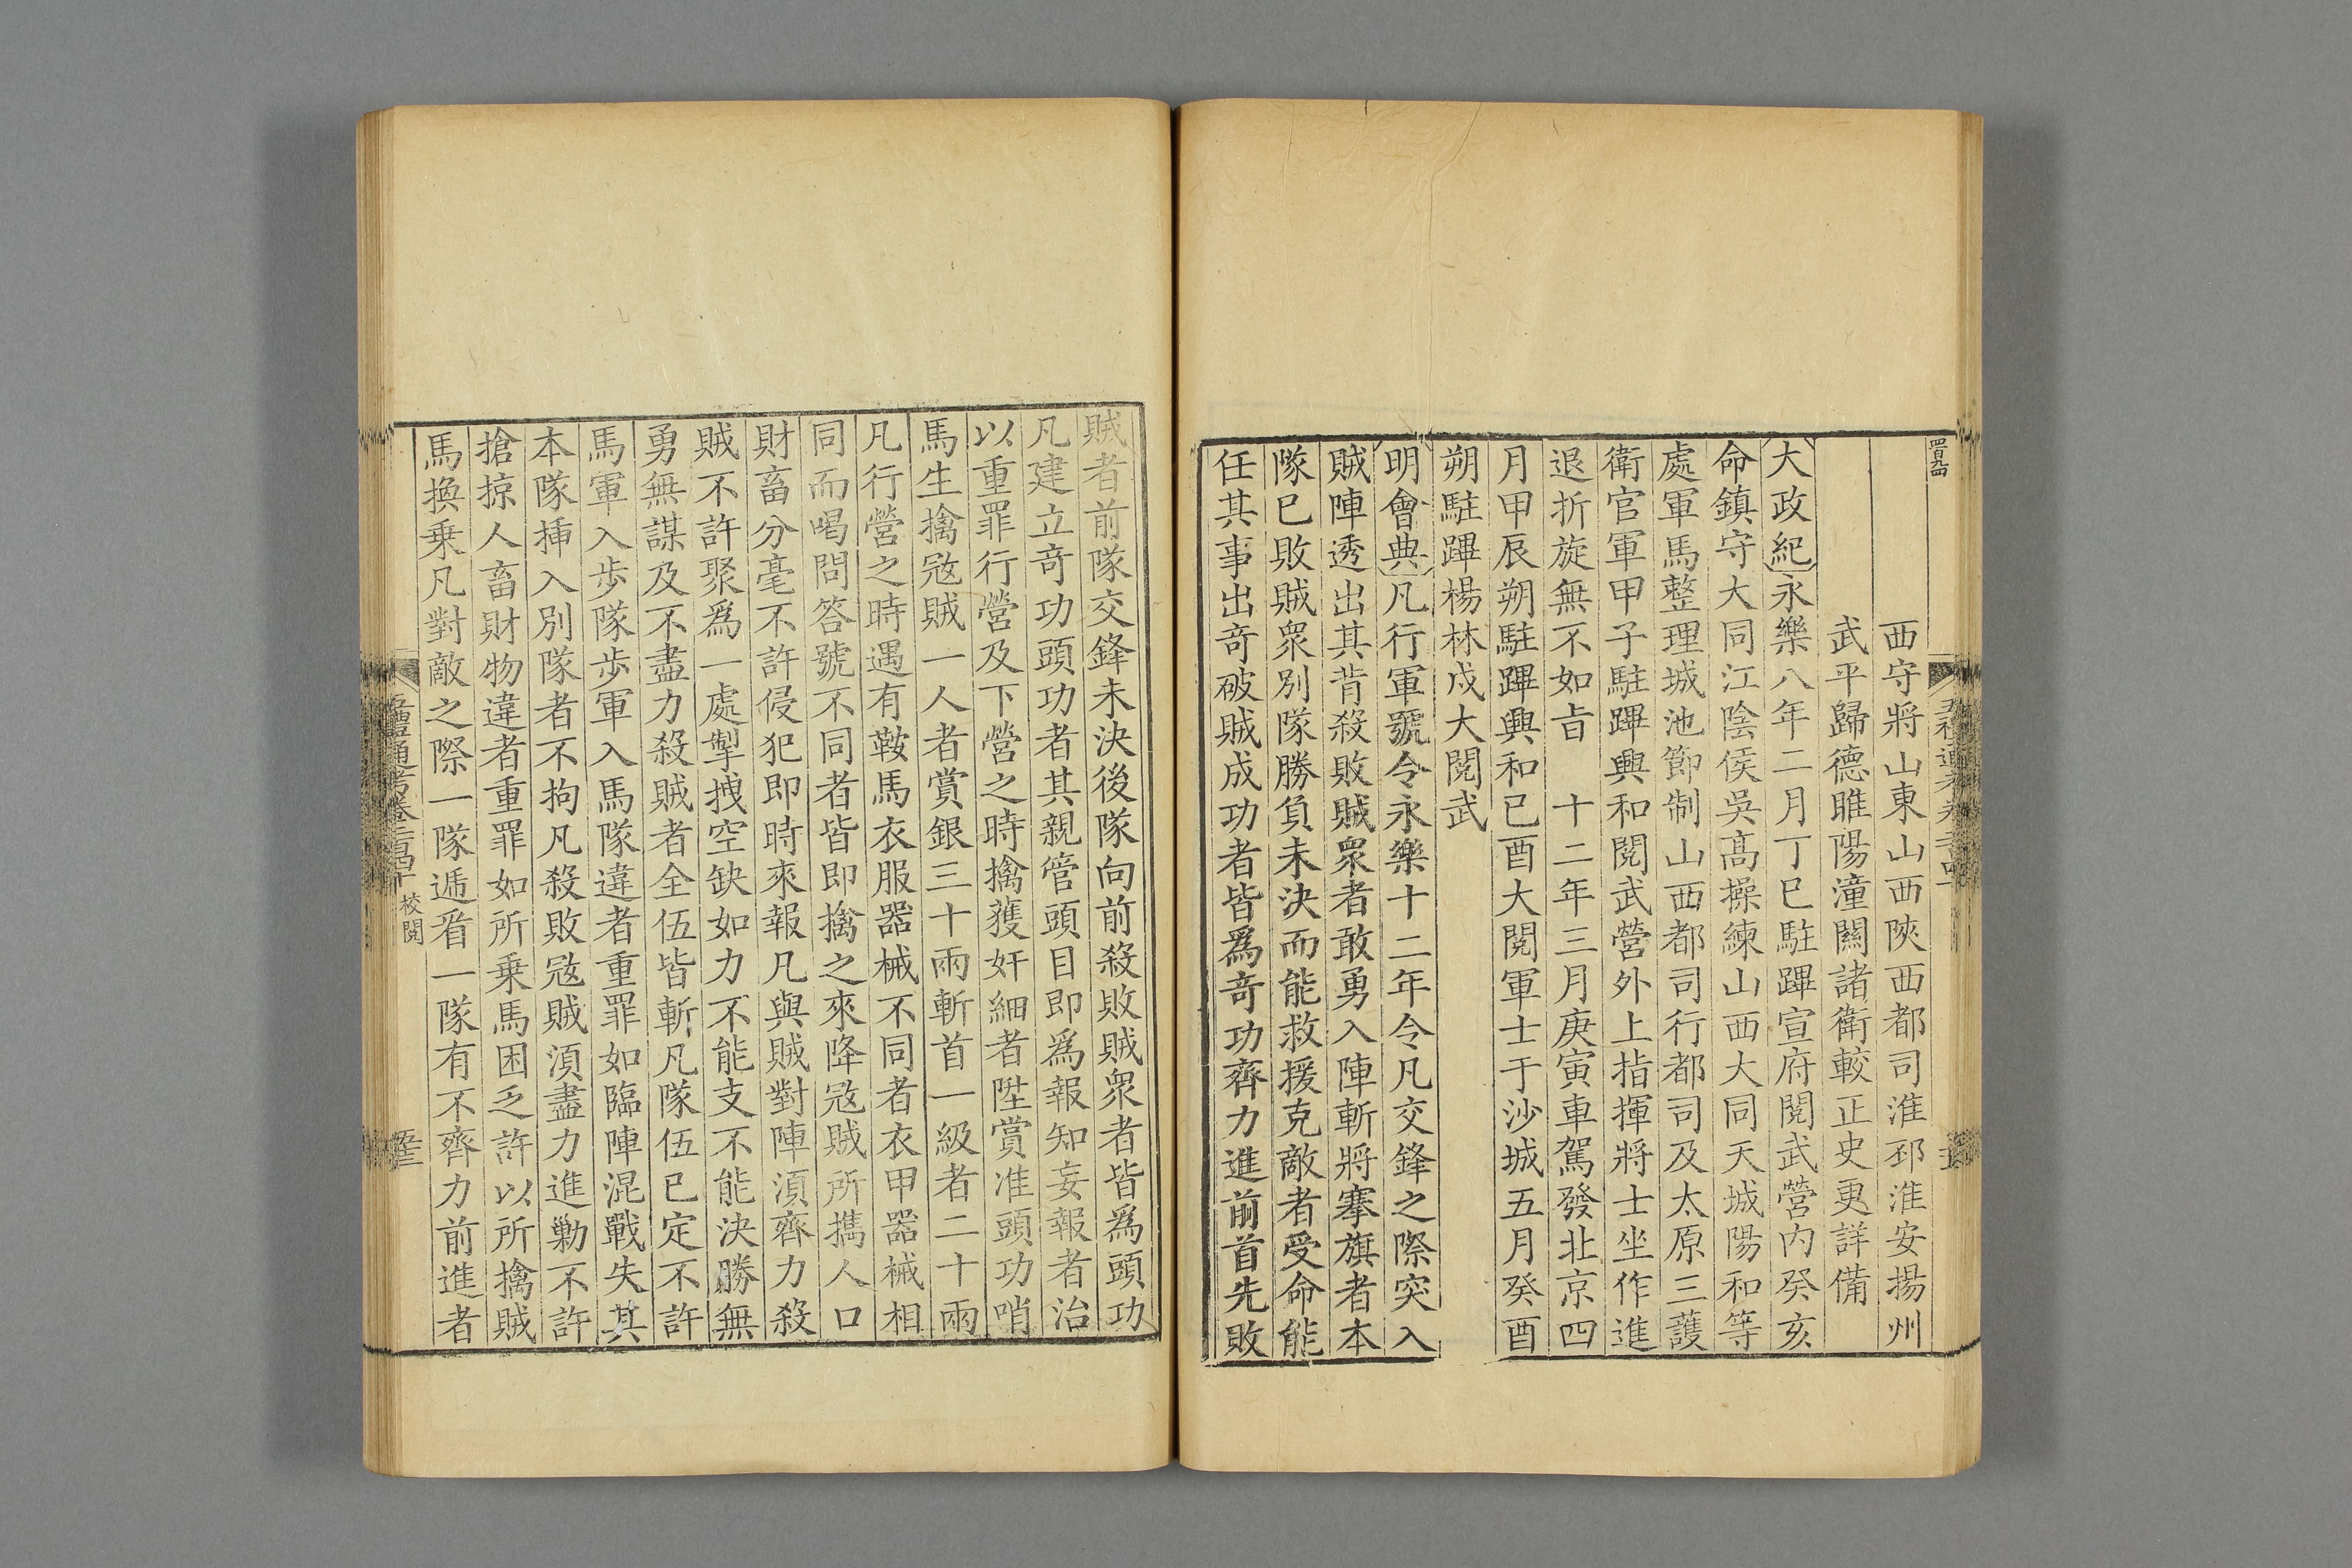 西守將山東山西陝西都司淮邳淮安揚州
武平歸德睢陽潼關諸衛較正史更詳備
大政紀永樂八年二月丁巳駐蹕宣府閱武營内癸亥
命鎮守大同江陰侯吳高操練山西大同天城陽和等
處軍馬整理城池節制山西都司行都司及太原三護
衛官軍甲子駐蹕興和閱武營外上指揮將士坐作進
退折旋無不如㫖　十二年三月庚寅車駕發北京四
月甲辰朔駐蹕興和已酉大閱軍士于沙城五月癸酉
朔駐蹕楊林戍大閱武
明會典凡行軍號令永樂十二年令凡交鋒之際突入
賊陣透出其背殺敗賊衆者敢勇入陣斬將搴旗者本
隊已敗賊衆别隊勝負未決而能救援克敵者受命能
任其事出奇破賊成功者皆爲奇功齊力進前首先敗
賊者前隊交鋒未決後隊向前殺敗賊衆者皆爲頭功
凡建立奇功頭功者其親管頭目即爲報知妄報者治
以重罪行營及下營之時擒獲奸細者陞賞准頭功哨
馬生擒宼賊一人者賞銀三十兩斬首一級者二十兩
凡行營之時遇有鞍馬衣服器械不同者衣甲器械相
同而喝問答號不同者皆即擒之來降宼賊所擕人口
財畜分毫不許侵犯即時來報凡與賊對陣湏齊力殺
賊不許聚爲一處掣拽空缺如力不能支不能決勝無
勇無謀及不盡力殺賊者全伍皆斬凡隊伍已定不許
馬軍入歩隊歩軍入馬隊違者重罪如臨陣混戰失其
本隊揷入别隊者不拘凡殺敗宼賊湏盡力進勦不許
搶掠人畜財物違者重罪如所乗馬困乏許以所擒賊
馬換乗凡對敵之際一隊遞㸔一隊有不齊力前進者
校閱